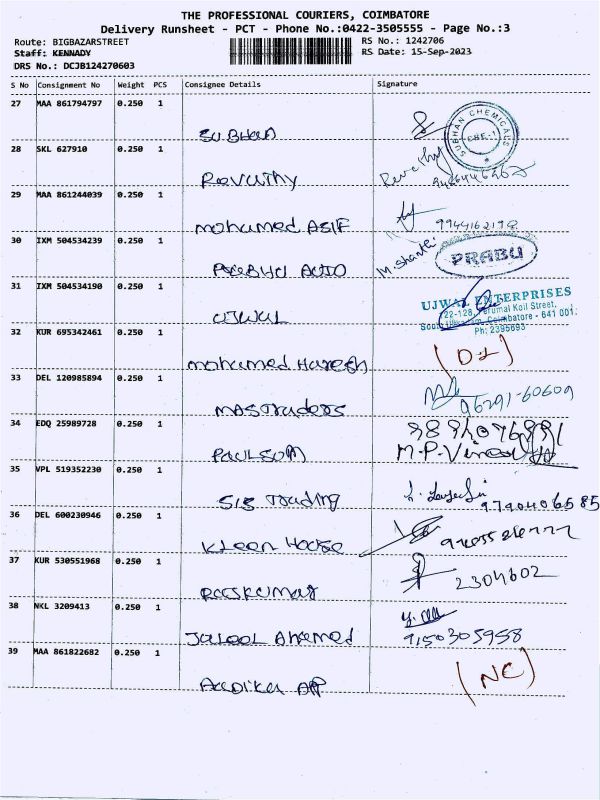 THE PROFESSIONAL COURIERS, COIMBATORE
Delivery Runsheet - PCT - Phone No.:0422-3505555 - Page No.:3
Route: BIGBAZARSTREET
RS No.: 1242706
Staff: KENNADY
RS Date: 15-Sep-2023
DRS No.: DCJB124270603
S No Consignment No Weight PCS Consignee Details Signature
27 MAA 861794797 0.250 1
SUBHAN
SUBHAN CHEMICALS
CBE-1
28 SKL 627910 0.250 1
Revathy
Revathy
29 MAA 861244039 0.250 1
mohamed ASIF
9944162198
30 IXM 504534239 0.250 1
Prabhu AUTO
M. Shanthi
PRABU
31 IXM 504534190 0.250 1
UJWAL
UJWAL ENTERPRISES
122-128, Perumal Koil Street,
Coimbatore - 641 001.
Ph: 2395693
32 KUR 695342461 0.250 1
mohamed Haresh
(DL)
33 DEL 120985894 0.250 1
MAS Traders
96291-60609
34 EDQ 25989728 0.250 1
PAULSON
M.P.Vinod
35 VPL 519352230 0.250 1
SIS Trading
9790406585
36 DEL 600230946 0.250 1
Kleen House
37 KUR 530551968 0.250 1
Rajkumar
2304602
38 NKL 3209413 0.250 1
Jaleel Ahamed
9150305958
39 MAA 861822682 0.250 1
(NC)